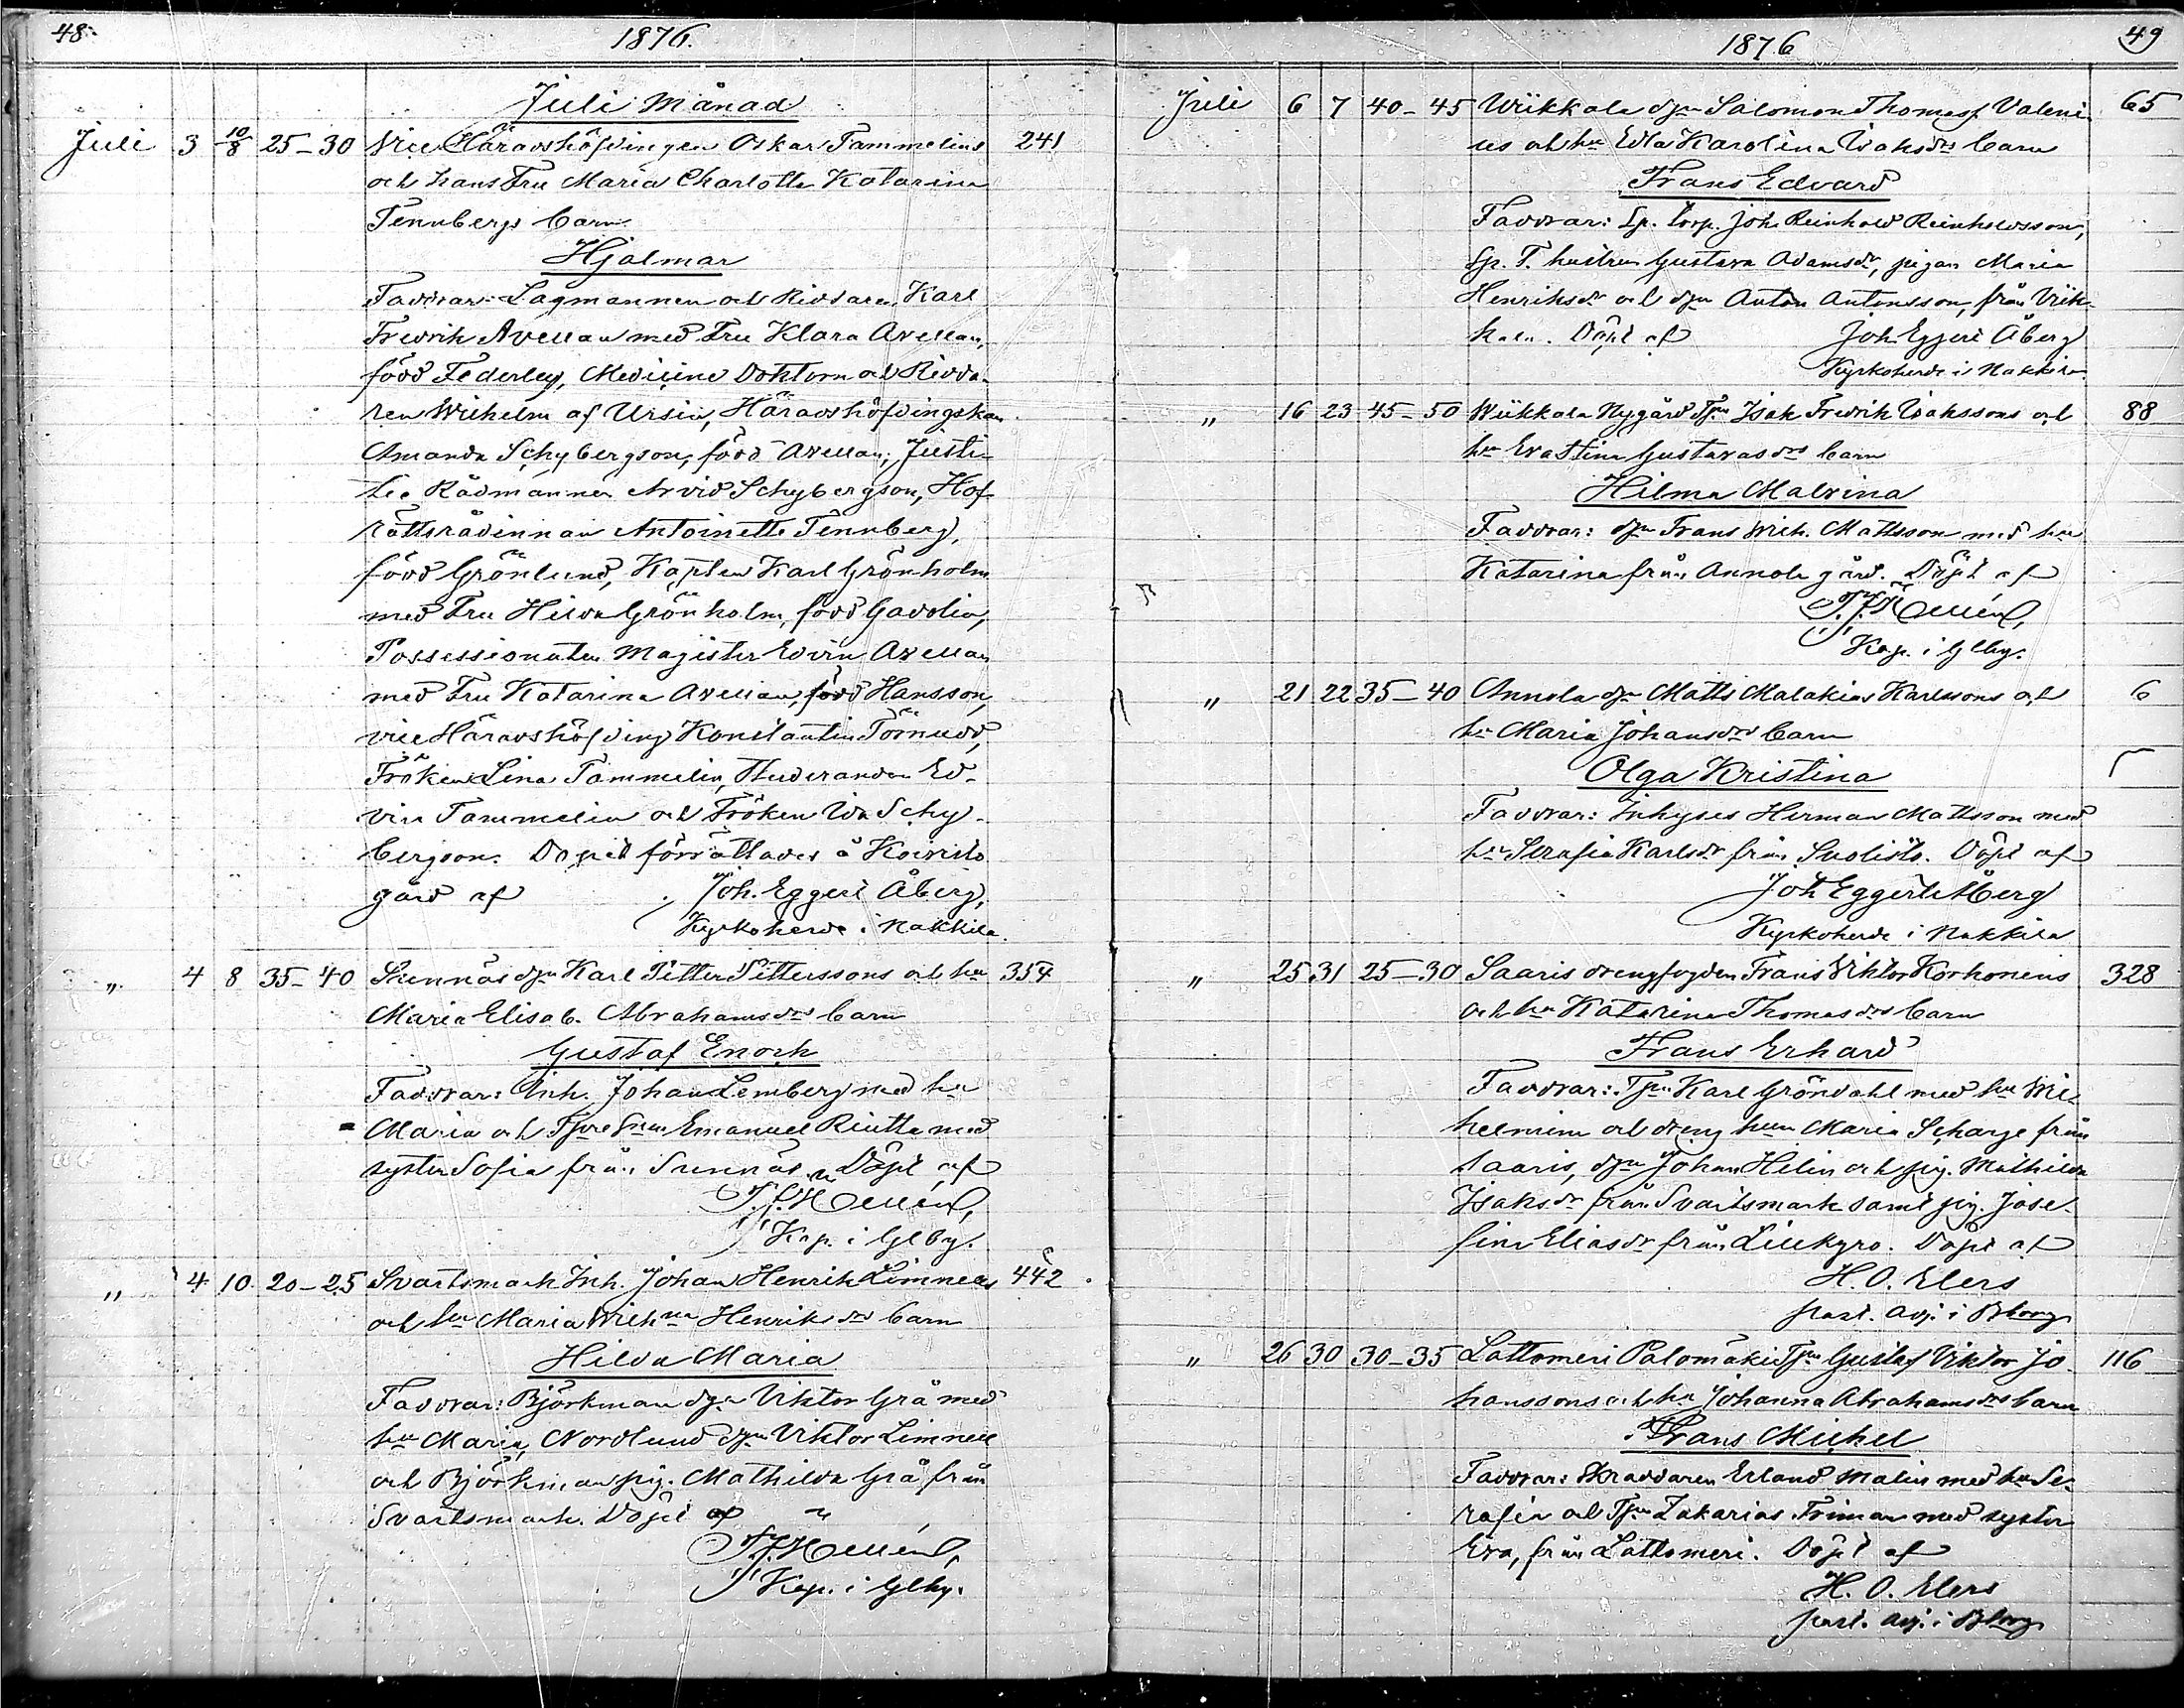 48.
1876.
Juli Månad
Juli 3 10/8 25-30 Vice Häradshöfdingen Oskar Tammelins 241
och hans Fru Maria Charlotta Katarina
Tennbergs barn
Hjalmar
Faddrar: Lagmannen och Riddaren Karl
Fredrik Avellan med Fru Klara Avellan,
född Federley, Medicine Doktorn och Ridda-
ren Wilhelm af Ursin, Häradshöfdingskan
Amanda Schybergson, född Avellan, Justi-
tie Rådmannen Arvid Schybergson, Hof-
rättsrådinnan Antoinette Tennberg,
född Grönlund, Kapten Karl Grönholm
med Fru Hilda Grönholm, född Gadolin,
Possessionaten Magister Edvin Avellan
med Fru Katarina Avellan, född Hansson,
vice Häradshöfding Konstantin Törnudd,
Fröken Lina Tammelin, Studeranden Ed-
vin Tammelin och Fröken Ida Schy-
bergson. Dopet förrättades å Koivisto
gård af Joh. Eggert Åberg,
Kyrkoherde i Nakkila.
" 4 8 35-40 Sunnäs dgn Karl Petter Petterssons och hu 354
Maria Elisab. Abrahamsdrs barn
Gustaf Enoch
Faddrar: Inh. Johan Lemberg med hu
Maria och Emanuel Riutta med
syster Sofia från Sunnäs. Döpt af
Kap. i Glby.
" 4 10 20-25 Svartsmark Inh. Johan Henrik Limnells 442
och hu Maria Wilhna Henriksdrs barn
Hilda Maria
Faddrar: Björkman dgn Viktor Grå med
hu Maria, Nordlund dgn Viktor Limnell
och Björkman pig. Mathilda Grå från
Svartsmark. Döpt af
Kap. i Glby.
1876
49
Juli 6 7 40-45 Wiikkala dgn Salomon Thomass. Valeni- 65
us och hu Edla Karolina Isaksdrs barn
Frans Edvard
Faddrar: Sp. torp. Joh. Reinhold Reinholdsson,
Sp. T. hustrun Gustava Adamsdr, pigan Maria
Henriksdr och dgn Anton Antonsson, från Wiik-
kala. Döpt af Joh. Eggert Åberg
Kyrkoherde i Nakkila.
" 16 23 45-50 Wiikkala Nygård Tpn Isak Fredrik Isakssons och 88
hu Eva Stina Gustavasdrs barn
Hilma Malvina
Faddrar: dgn Frans Wilh. Mattsson med hu
Katarina från Annola gård. Döpt af
Kap. i Glby.
" 21 22 35-40 Annola dgn Matts Malakias Karlssons och 6
hu Maria Johansdrs barn
Olga Kristina
Faddrar: Inhyses Herman Mattsson med
hu Serafia Karlsdr från Suolisto. Döpt af
Joh Eggert Åberg
Kyrkoherde i Nakkila
" 25 31 25-30 Saaris drengfogden Frans Viktor Korhonens 328
och hu Katarina Thomasdrs barn
Frans Erhard
Faddrar: Tpn Karl Gröndahl med hu Wil-
helmina och dreng hun Maria Scharge från
Saaris, dgn Johan Helin och pig. Mathilda
Isaksdr från Svartsmark samt pig. Jose-
fina Eliasdr från Lillkyro. Döpt af
H. O. Elers
past. adj. i Bborg
" 26 30 30-35 Lattomeri Palomäki Tpn Gustaf Viktor Jo- 116
hanssons och hu Johanna Abrahamsdrs barn
Frans Mickel
Faddrar: Skräddaren Erland Malin med hu Se-
rafia och Tpn Zakarias Friman med syster
Eva, från Lattomeri. Döpt af
H. O. Elers
past. adj. i Bborg